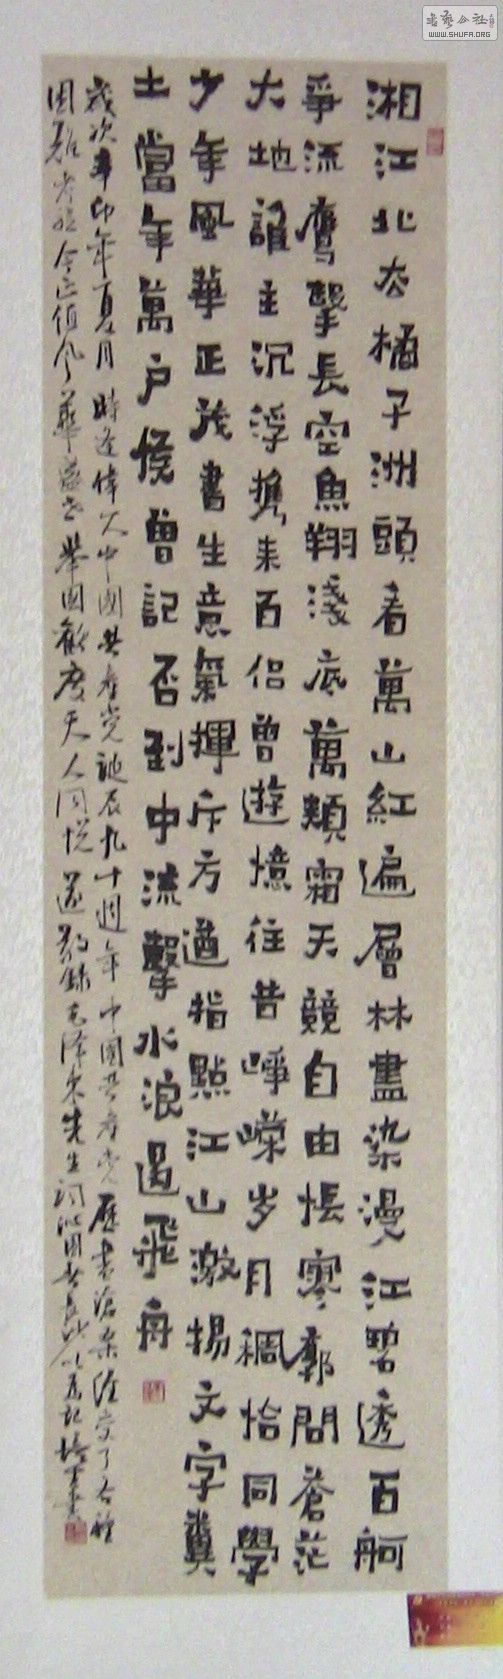 書藝公社
WWW.SHUFA.ORG
湘江北去橘子洲頭看萬山紅遍層林盡染漫江碧透百舸
爭流鷹擊長空魚翔淺底萬類霜天競自由悵寥廓問蒼茫
大地誰主沉浮攜来百侣曾遊憶往昔崢嶸岁月稠恰同學
少年風華正茂書生意氣揮斥方遒指點江山激揚文字糞
土當年萬户侯曾記否到中流擊水浪遏飛舟
歲次辛卯年夏月時逢偉大中國共產党誕辰九十週年中國共產党歷盡滄桑經受了各種
困難考驗今正值風華舉國歡度天人同悦敬録毛泽東先生詞沁園春長沙以為記